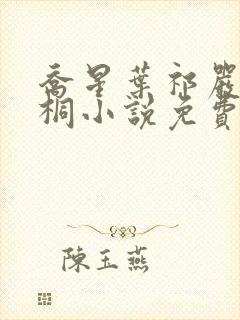 喬星葉祁嚴
桐小說免費
陳玉燕